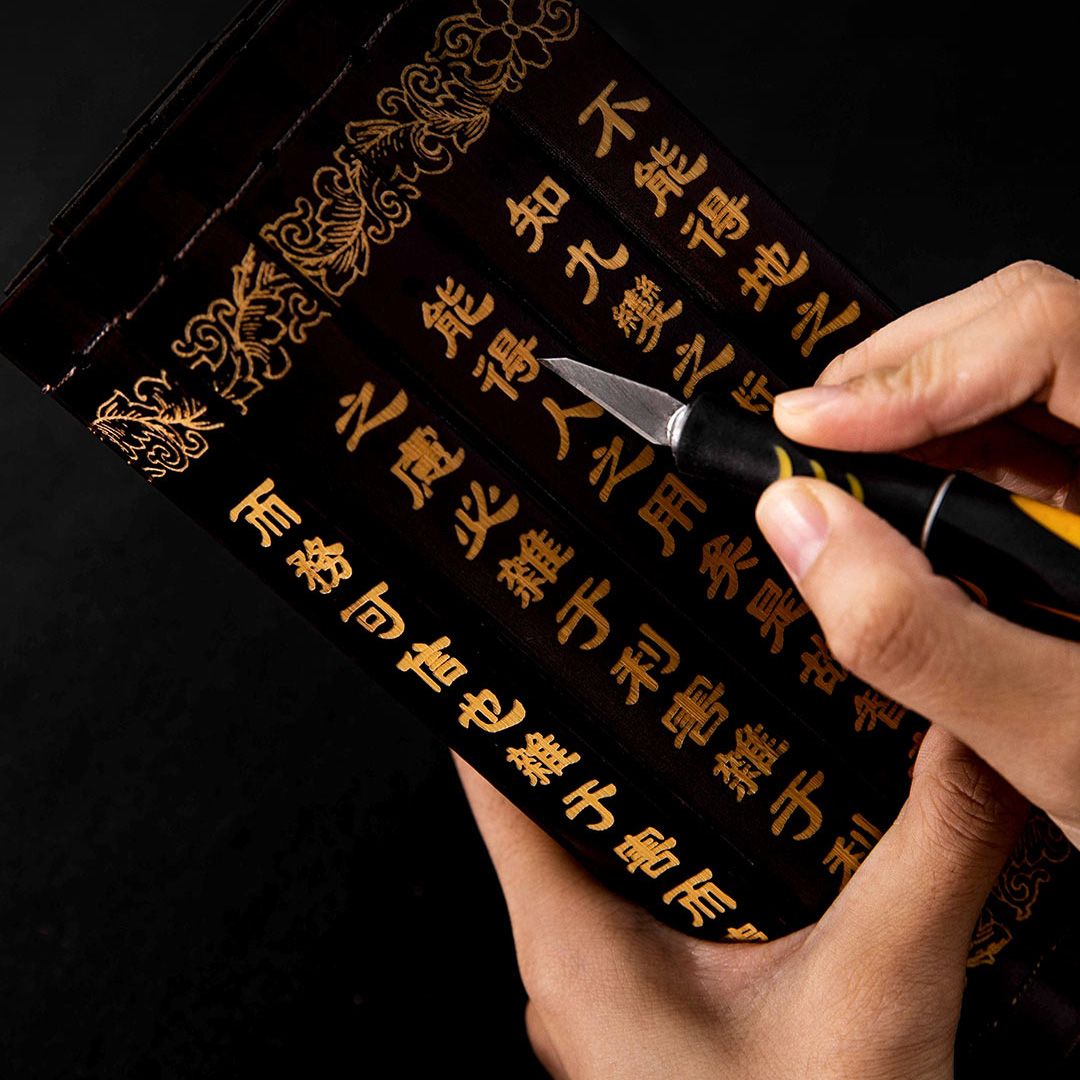 不能得地之
知九變之術
能得人之用矣是故智
之慮必雜于利害雜于利
而務可信也雜于害而